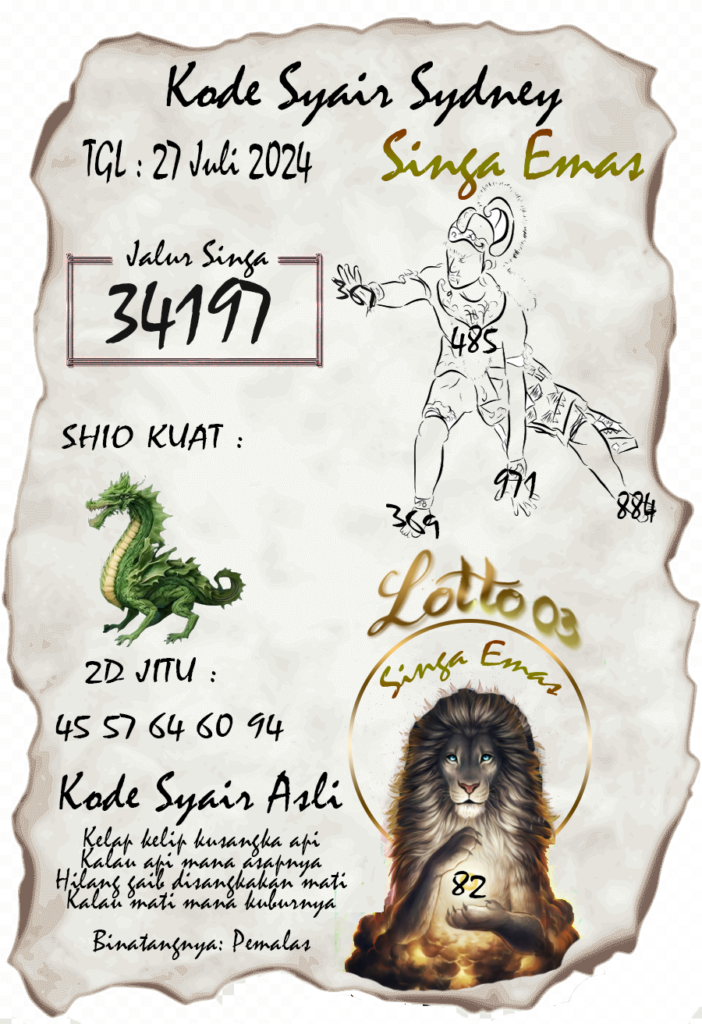 Kode Syair Sydney
TGL : 27 Juli 2024
Singa Emas
Jalur Singa
34197
367
485
971
884
369
SHIO KUAT :
Lotto 03
Singa Emas
2D JITU :
45 57 64 60 94
Kode Syair Asli
Kelap kelip kusangka api
Kalau api mana asapnya
Hilang gaib disangkakan mati
Kalau mati mana kuburnya
Binatangnya: Pemalas
82